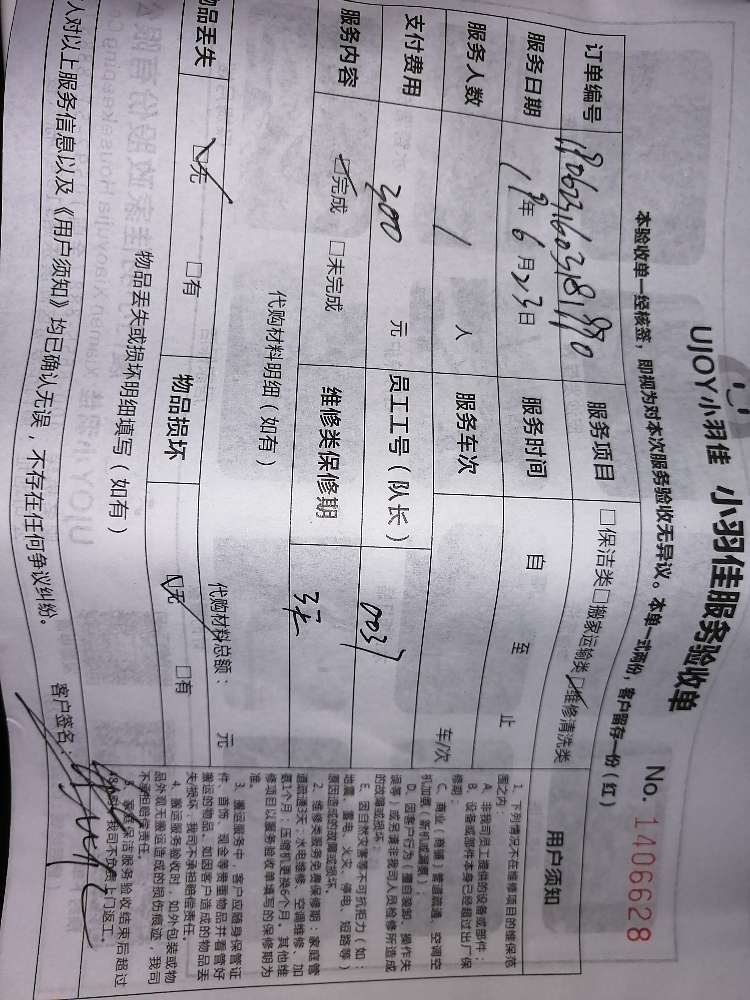 UJOY小羽佳 小羽佳服务验收单
No. 1406628
本验收单一经核签，即视为对本次服务验收无异议。本单一式两份，客户留存一份（红）
订单编号 服务项目 □保洁类□搬家运输类□维修清洗类
服务日期 19年 6月23日 服务时间 自 至 止
服务人数 1 人 服务车次 车/次
支付费用 300 元 员工工号（队长） 0037
服务内容 □完成 □未完成 维修类保修期 3天
代购材料明细（如有） 代购材料总额： 元
物品丢失 □无 □有 物品损坏 □无 □有
物品丢失或损坏明细填写（如有）
人对以上服务信息以及《用户须知》均已确认无误，不存在任何争议纠纷。
客户签名：
用户须知
1. 下列情况不在维修项目的维保范
围之内：
A. 非我司员工提供的设备或部件；
B. 设备或部件本身已经超过出厂保
修期；
C. 商业（商铺）管道疏通、空调空
机加氟（新机或漏氟）；
D. 因客户行为（擅自装卸、操作失
误等）或另请非我司人员检修所造成
的故障或损坏；
E. 因自然灾害等不可抗拒力（如：
地震、雷电、火灾、停电、短路等）
原因造成的故障或损坏。
2. 维修类服务免费保修期：家庭管
道疏通3天；水电维修、空调维修、加
氟1个月；压缩机更换6个月。其他维
修项目以服务验收单填写的保修期为
准。
3. 搬运服务中，客户应随身保管证
件、首饰、现金等贵重物品并看管好
搬运的物品，如因客户造成的物品丢
失损坏，我司不承担赔偿责任。
4. 搬运服务验收时，如外包装或物
品外观无搬运造成的损伤痕迹，我司
不承担赔偿责任。
5. 家庭保洁服务验收结束后超过
我司不负责上门返工。